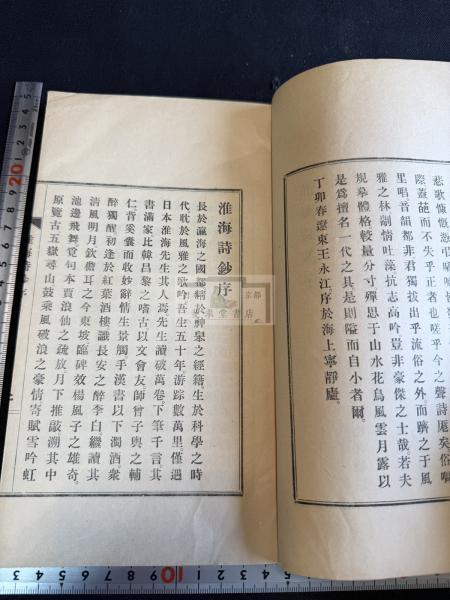 悲歌慷慨
際蓋葩而不失乎正者也嗟乎今之聲詩厖矣俗
里唱音韻都非君獨拔出乎流俗之外而躋之于風
雅之林劌情吐藻抗志高吟豈非豪傑之士哉若夫
規摹體格較量分寸殫思于山水花鳥風雲月露以
是爲擅名一代之具是則隘而自小者爾
丁卯春遼東王永江序於海上寧靜廬
淮海詩鈔序
長於瀛海之國都
代耽於風雅之歌吟吾生五十年游踪數萬里僅遇
日本淮海先生其人焉先生讀破萬卷下筆千言其
書滿家比韓昌黎之嗜古以文會友師曾子輿之輔
仁背奚囊而收妙辭情生景觸手漢書以下濁酒衆
醉獨醒初逢於紅葉酒樓識長安之醉李白繼讀其
清風明月欽儋耳之今東坡臨碑效楊風子之雄奇
池邊飛舞覓句本賈浪仙之疏放月下推敲溯其中
原覽古五嶽尋山鼓乘風破浪之豪情寄賦雪吟虹